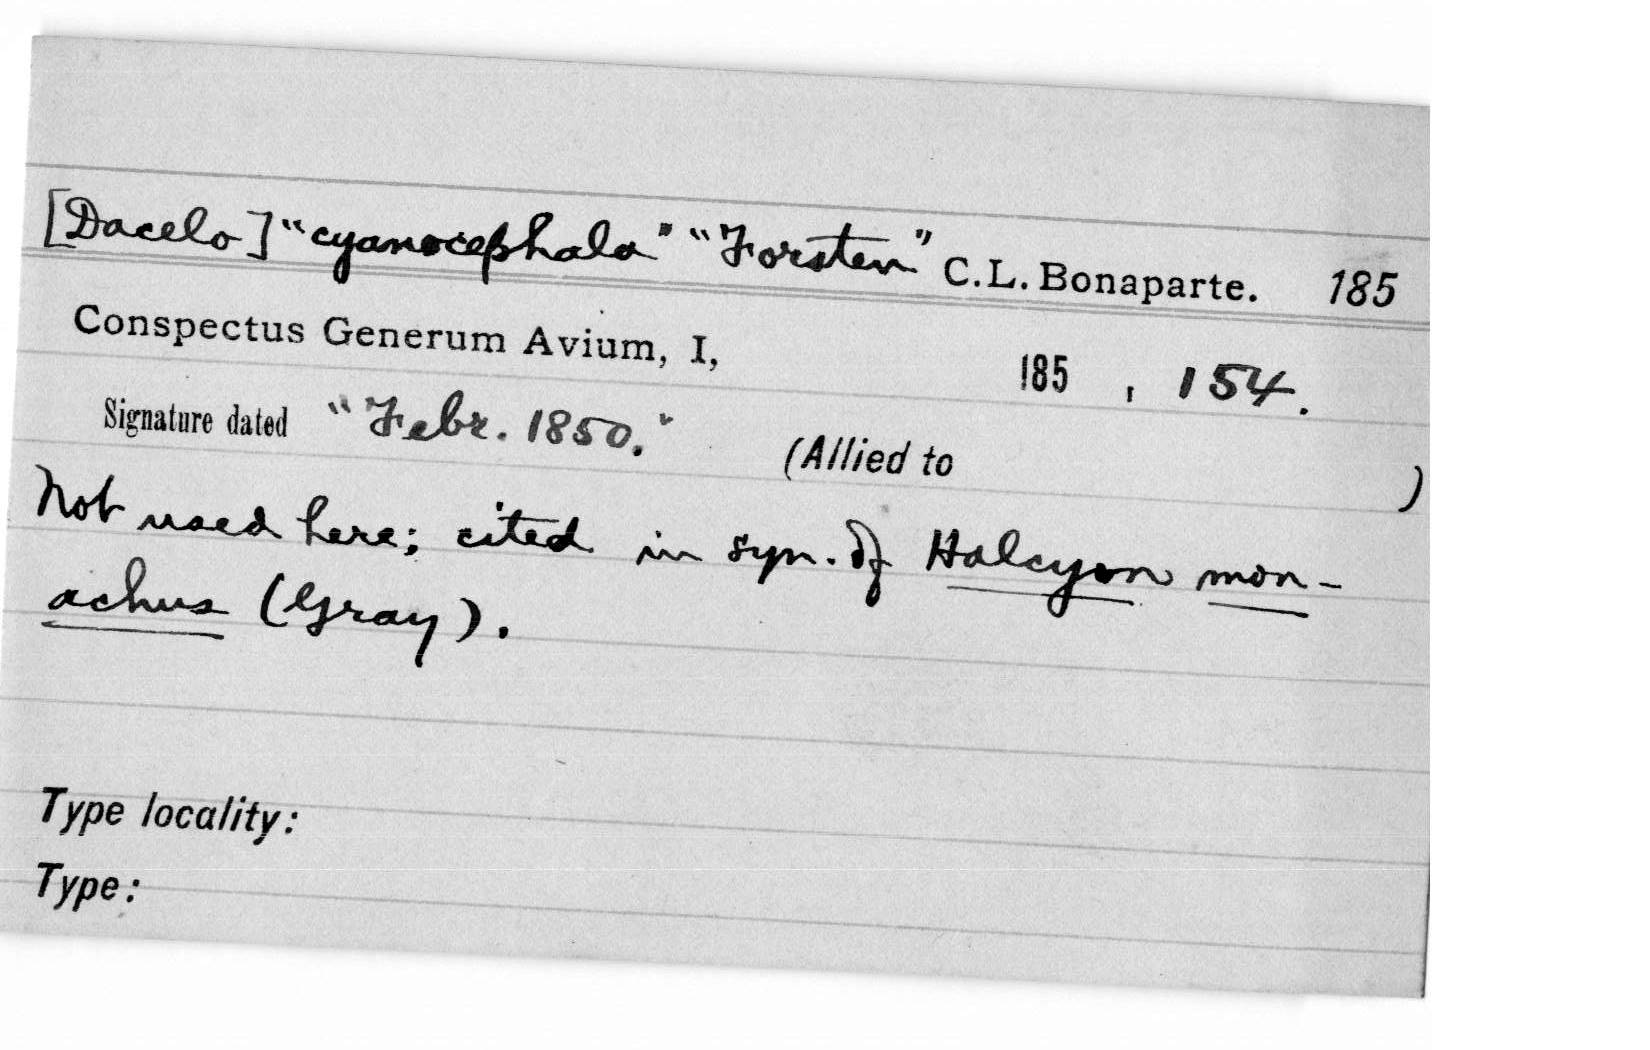 [Dacelo] "cyanocephala" "Forsten" C.L. Bonaparte. 185
Conspectus Generum Avium, I, 185 , 154.
Signature dated "Febr. 1850." (Allied to )
Not used here; cited in syn. of Halcyon mon-
achus (Gray).
Type locality:
Type: